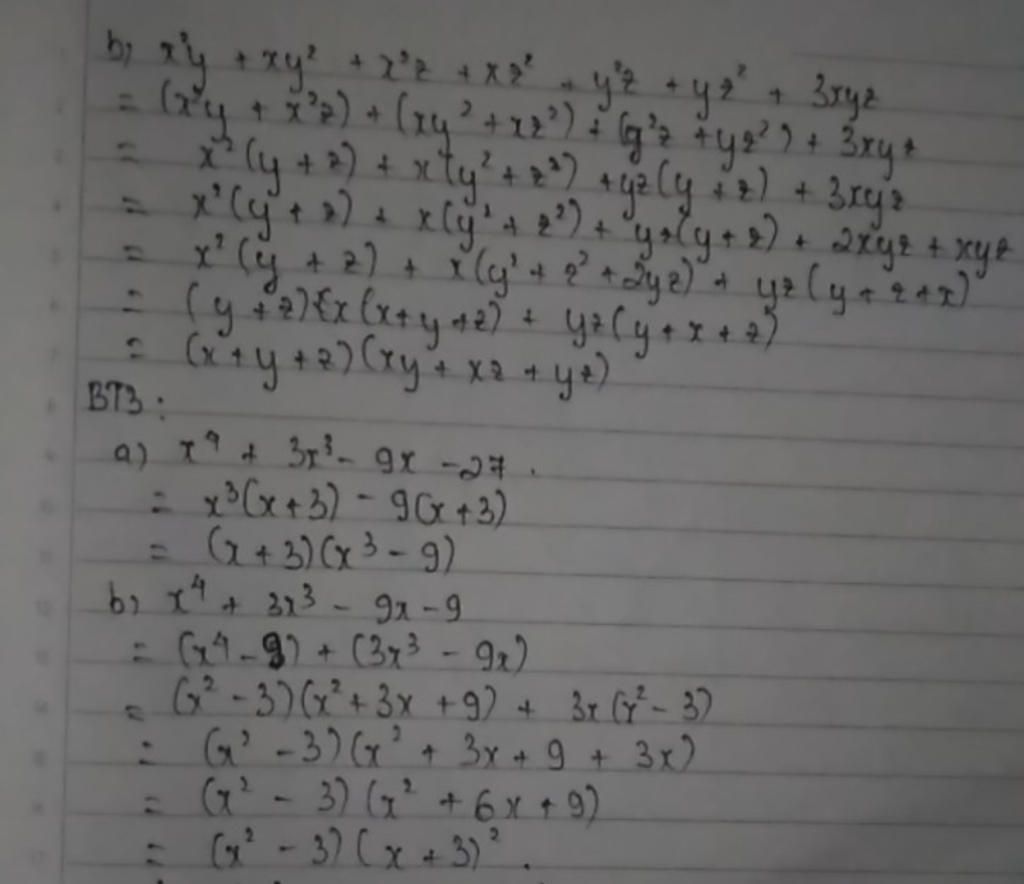 b, x²y + xy² + x²z + xz² + y²z + yz² + 3xyz
= (x²y + x²z) + (xy² + xz²) + (y²z + yz²) + 3xyz
= x²(y + z) + x(y² + z²) + yz(y + z) + 3xyz
= x²(y + z) + x(y² + z²) + yz(y + z) + 2xyz + xyz
= x²(y + z) + x(y² + z² + 2yz) + yz(y + z + x)
= (y + z){x(x + y + z) + yz(y + x + z)
= (x + y + z)(xy + xz + yz)
BT3:
a) x⁴ + 3x³ - 9x - 27.
= x³(x + 3) - 9(x + 3)
= (x + 3)(x³ - 9)
b, x⁴ + 3x³ - 9x - 9
= (x⁴ - 9) + (3x³ - 9x)
= (x² - 3)(x² + 3x + 9) + 3x(x² - 3)
= (x² - 3)(x² + 3x + 9 + 3x)
= (x² - 3)(x² + 6x + 9)
= (x² - 3)(x + 3)².